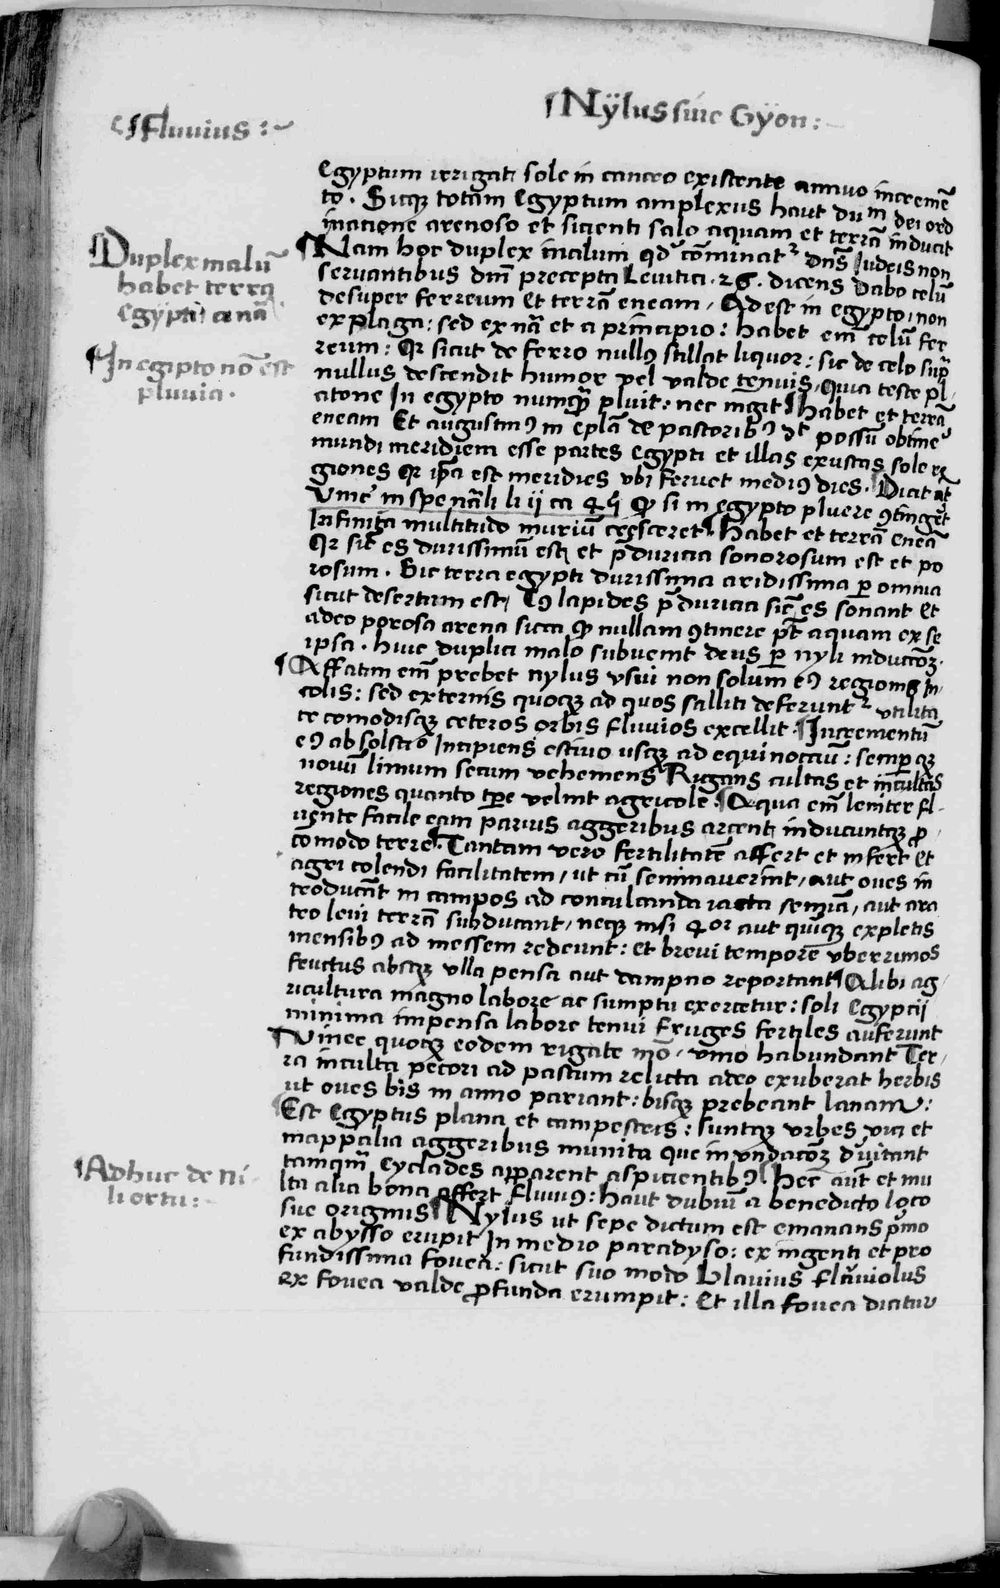 ¶Fluvius :~
¶Nÿlus sive Gÿon :~
Egyptum irrigati sole in cancro existente annuo incremē
to . Sicq̄ totam Egyptum amplexus haut dum dei ord
inacione arenoso et sicienti salo aquam et terrā inducit
¶Nam hoc duplex malum qd̄ cōminatr dn̄s Iudeis non
servantibus dn̄i precepta Levitici . 26 . dicens Dabo celū
desuper ferreum et terrā eneam , Qd est in egypto , non
ex plaga : sed ex nā et a principio : habet em̄ celū fer
reum : Qr sicut de ferro nullꝰ stillat liquor : sic de celo sup̄
nullus descendit humor vel valde tenuis . Quia teste pl
atone In egypto numq̄ pluit : nec ningit ¶habet et terrā
eneam Et augustinꝰ in eplā de pastoribꝰ dt possū obtine
mundi meridiem esse partes egypti et illas exustas sole re
giones qr ip̄a est meridies ubi fervet mediꝰ dies . ¶Dicit at
Vinc in spe nāli li ii ca 45 Qp si in egypto pluere ꝯtinget
Infinita multitudo muriū cresceret ¶Habet et terrā eneā
Qr sic̄ es durissimū est , et p̄ duricia sonorosum est et po
rosum . Sic terra egypti durissima aridissima p omnia
sicut desertum est , Eꝰ lapides p̄ duricia sic̄ es sonant Et
adeo porosa arena sicca qp nullam ꝯtinere pt̄ aquam ex se
ipsa . huic duplici malo subvenit deus p nyli inductōz .
¶Affatim em̄ prebet nylus usui non solum eꝰ regionis in
colis : sed externis quoqꝫ ad quos salliti deferuntr utilita
te comodisqꝫ ceteros orbis fluvios excellit . ¶Incrementū
eꝰ ab solstio Incipiens estivo usqꝫ ad equinoctiū : sempqꝫ
novū limum secum vehemens Rigans cultas et incultas
regiones quanto tpe velint agricole . ¶Aqua em̄ leniter fl
uente facile eam parvis aggeribus arcent , inducuntqꝫ p
comodo terre . ¶Tantam vero fertilitatē affert et infert Et
agri colendi facilitatem , ut cū seminaverint , aut oves in
troducāt in campos ad conculcanda iacta semīa , aut ara
tro levi terrā subducant , neqꝫ nisi 4or aut quiqꝫ expletis
mensibꝰ ad messem redeunt : et brevi tempore uberrimos
fructus absqꝫ ulla pensa aut dampno reportant ¶Alibi ag
ricultura magno labore ac sumptu exercetur : soli Egyptij
minima impensa labore tenui Fruges fertiles auferunt
¶Vinee quoqꝫ eodem rigate mō , vino habundant Ter
ra inculta pecori ad pastum relicta adeo exuberat herbis
ut oves bis in anno pariant : bisqꝫ prebeant lanam :
¶Est Egyptus plana et campestris : suntqꝫ urbes vici et
mappalia aggeribus munita que inundacōz divitant
tamqm̄ Cyclades apparent aspicientibꝰ ¶Hec aūt et mu
lta alia bona affert fluviꝰ : haut dubiū a benedicto loco
sue originis ¶Nylus ut sepe dictum est emanans pmo
ex abysso erupit In medio paradyso : ex ingenti et pro
fundissima fovea : sicut suo modo Blavius fluviolus
ex fovea valde profunda erumpit : Et illa fovea dicitur
¶Duplex malū
habet terra
Egypti a nā
¶In egipto nō est
pluvia .
¶Adhuc de ni
li ortu :~